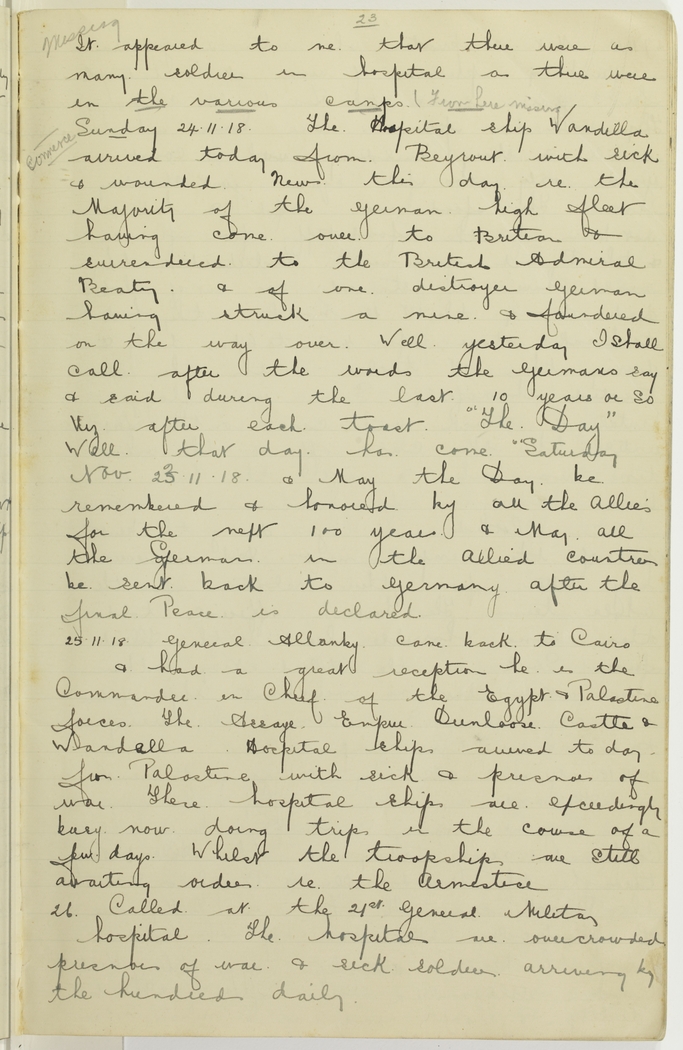 23
Missing
It appeared to me. that there were as
many. soldiers in hospital as there were
in the various camps. (From here missing
Commence
Sunday 24.11.18. The. Hospital ship Wandilla
arrived today from. Beyrout. with sick
& wounded. News. this day. re. the
Majority of the german. high fleet
having come. over. to Britian &
surrendered. to the British Admiral
Beaty. & of one. distroyer german
having struck a mine. & foundered
on the way over. Well. yesterday I shall
call. after the words the germans say
& said during the last. 10 years or so
Viz. after each toast. "The. Day"
Well. that day. has come. "Saturday
Nov. 23.11.18. & May the Day. be
remembered & honored by all the Allies
for the next 100 years. & May. all
the German. in the Allied countres
be. sent. back to Germany after the
final Peace. is declared.
25.11.18 General Allanby. came back. to Cairo
& had a great reception he. is the
Commander. in Cheif. of the Egypt. & Palastine
forces. The. Assaye. Empire Dunloose. Castle &
Wandella. Hospital ships arrived to day.
from. Palastine with sick & presnors of
war. These. hospital ships are. exceedingly
busy now. doing trips in the course of a
few days. Whilst the troopships are still
awaiting orders. re. the Armestice
26. Called at. the 21st. General. Military
hospital. The. hospitals are. overcrowded
presnors of war. & sick soldiers. arriving by
the hundreds daily.